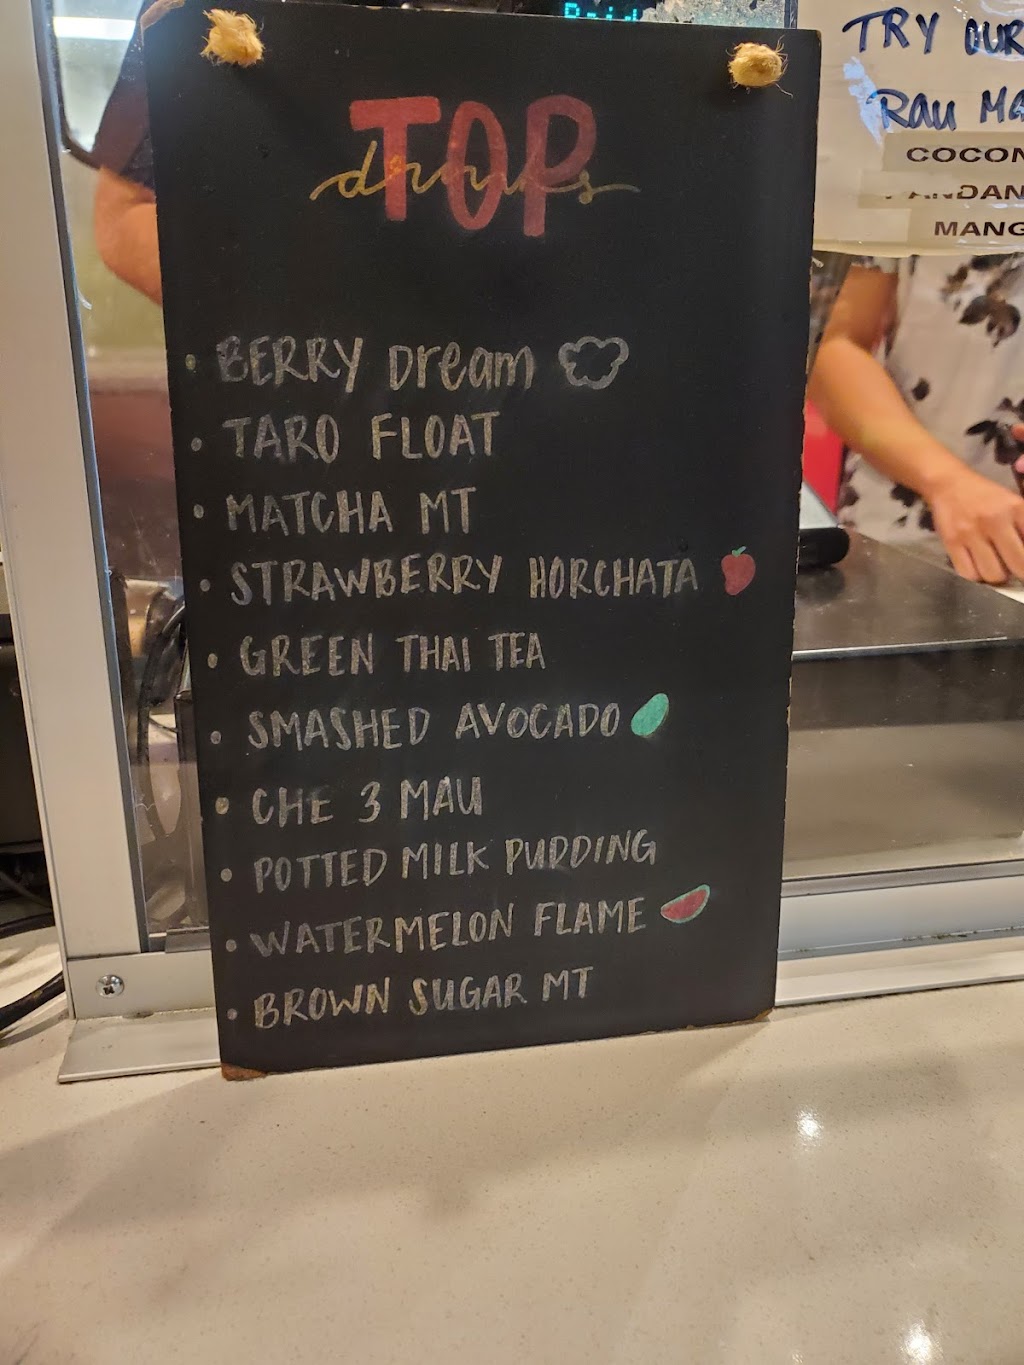 TOP
drinks
• BERRY Dream
• TARO FLOAT
• MATCHA MT
• STRAWBERRY HORCHATA
• GREEN THAI TEA
• SMASHED AVOCADO
• CHE 3 MAU
• POTTED MILK PUDDING
• WATERMELON FLAME
• BROWN SUGAR MT
TRY OUR
Rau Ma
COCON
PANDAN
MANG